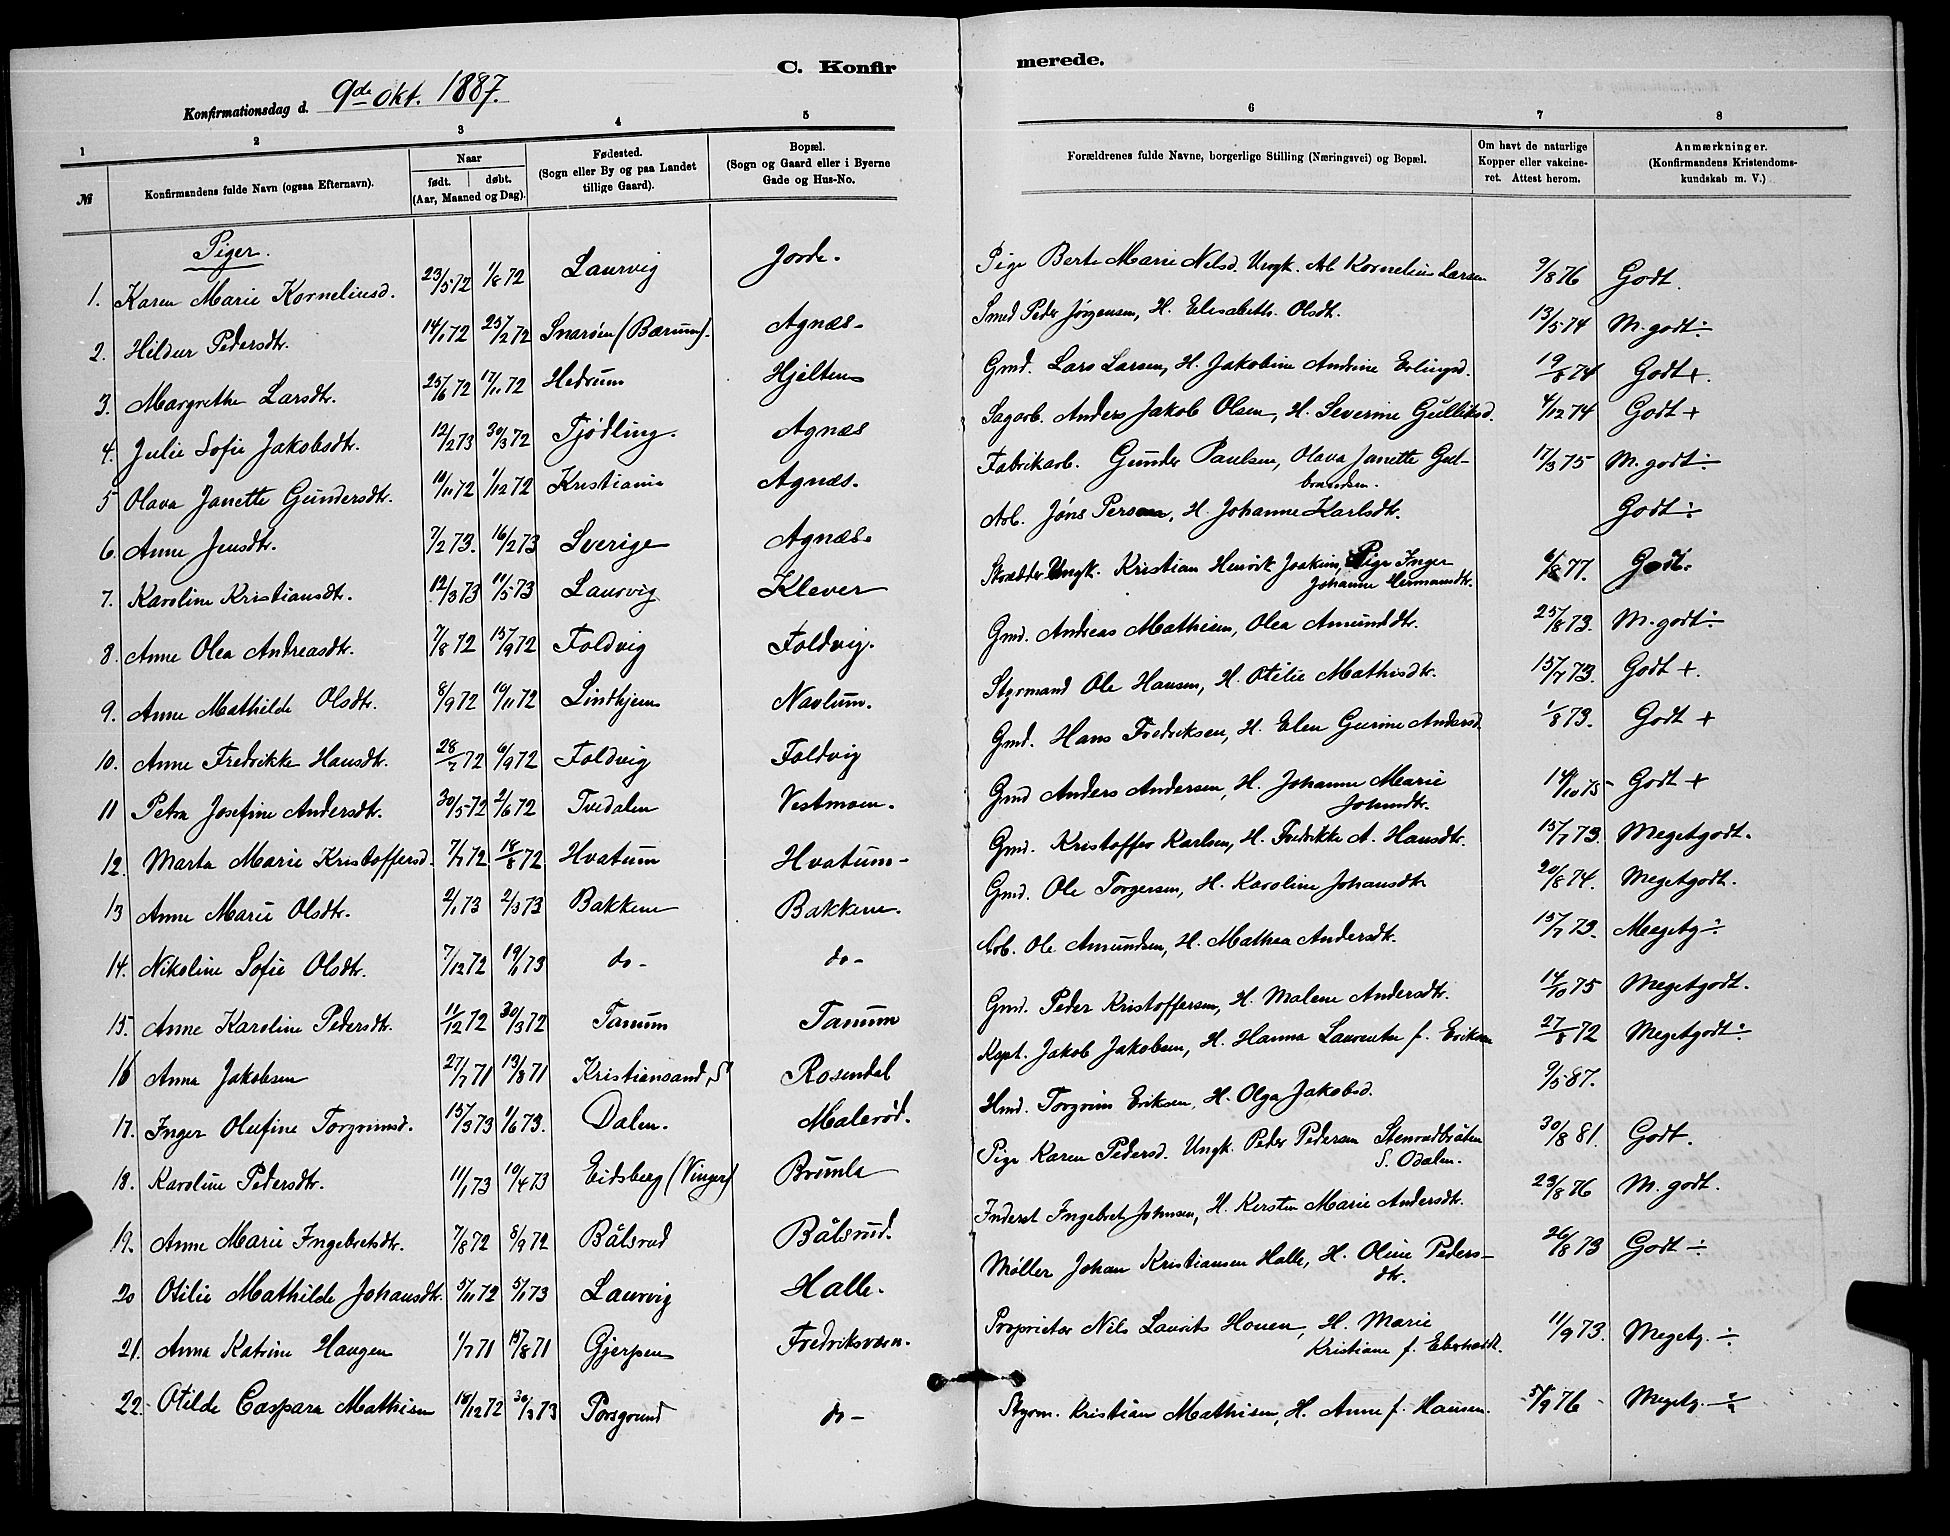 C. Konfirmerede.
Konfirmationsdag d. 9de Okt. 1887.
1 2 3 4 5 6 7 8
№ Konfirmandens fulde Navn (ogsaa Efternavn). Naar født. døbt. (Aar, Maaned og Dag). Fødested. (Sogn eller By og paa Landet tillige Gaard). Bopæl. (Sogn og Gaard eller i Byerne Gade og Hus-No. Forældrenes fulde Navne, borgerlige Stilling (Næringsvei) og Bopæl. Om havt de naturlige Kopper eller vakcineret. Attest herom. Anmærkninger. (Konfirmandens Kristendomskundskab m. V.)
Piger.
1. Karen Marie Korneliusd. 23/5 72 1/8 72 Laurvig Jorde. Pige Berte Marie Nilsd. Ungk. Arb Kornelius Larsen 9/8 76 Godt.
2. Hildur Pedersdtr. 14/1 72 25/2 72 Snarøen (Bærum). Agnæs. Smed Peder Jørgensen, H. Elisabeth Olsdt. 13/5 74 M. godt÷
3. Margrethe Larsdtr. 25/6 72 17/11 72 Hedrum Hjelten Gmd. Lars Larsen, H. Jakobine Andrine Erlingsd. 19/8 74 Godt+.
4. Julie Sofie Jakobsdtr. 12/2 73 30/3 72 Tjødling. Agnæs Sagarb. Anders Jakob Olsen, H. Severine Gulliksd. 4/12 74 Godt +
5 Olava Janette Gundersdtr. 10/11 72 1/12 72 Kristiania Agnæs. Fabrikarb. Gunder Paulsen, Olava Janette Gudbrandsen. 17/3 75 M. godt÷
6. Anne Jensdtr. 7/2 73. 16/2 73 Sverige Agnæs. Arb. Jøns Persen, H. Johanne Karlsdtr. Godt÷
7. Karoline Kristiansdtr. 12/3 73 11/5 73 Laurvig Klever Skrædder Ungk. Kristian Henrik Joakim, Pige Inger Johanne Hermansdtr. 6/8 77. Godt.
8. Anne Olea Andreasdtr. 7/8 72 15/9 72 Foldvig Foldvig. Gmd. Andreas Mathisen, Olea Amunddtr. 25/8 73. M. godt÷
9. Anne Mathilde Olsdtr. 8/9 72 10/11 72 Lindhjem Navlum. Styrmand Ole Hansen, H. Otilie Mathisdtr. 15/7 73. Godt +.
10. Anne Fredrikke Hansdtr. 28/7 72 6/9 72 Foldvig Foldvig Gmd. Hans Fredriksen, H. Elen Gurine Andersd. 1/8 73. Godt +
11 Petra Josefine Andersdtr. 30/5 72 2/6 72 Tvedalen Vestmoen. Gmd Anders Andersen, H. Johanne Marie Johnsdtr. 14/10 75 Godt +
12. Marta Marie Kristoffersd. 7/7 72 18/8 72 Hvatum Hvatum Gmd. Kristoffer Karlsen, H. Fredrikke A. Hansdtr. 15/7 73. Megetgodt.
13 Anne Marie Olsdtr. 2/1 73 2/3 73 Bakkene Bakkene. Gmd. Ole Torgersen, H. Karoline Johansdtr 20/8 74. Megetgodt.
14. Nikoline Sofie Olsdtr. 7/12 72 19/1 73 do- do- Arb. Ole Amundsen, H. Mathea Andersdtr. 15/7 73. Megetg÷
15. Anne Karoline Pedersdtr. 11/12 72 30/3 72 Tanum Tanum Gmd. Peder Kristoffersen, H. Malene Andersdtr. 14/10 75 Megetgodt.
16 Anna Jakobsen 27/7 71 13/8 71 Kristiansand, S Rosendal Kapt. Jakob Jakobsen, H. Hanna Laurentze f. Eriksen 27/8 72 Megetgodt÷
17. Inger Olufine Torgrimsd. 15/3 73 1/6 73. Dalen. Malerød. Hmd. Torgrim Eriksen, H. Olga Jakobsd. 9/5 87.
18. Karoline Pedersdtr. 11/1 73 10/4 73 Eidsberg (Vinger) Brumla Pige Karen Pedersd. Ungk. Peder Pedersen Stenrudbråten S. Odalen. 30/8 81. Godt.
19. Anne Marie Ingebretsdtr. 7/8 72 8/9 72 Bålsrud Bålsrud. Inderst Ingebret Johnsen, H. Kersten Marie Andersdtr. 23/8 76 M. godt.
20 Otilie Mathilde Johansdtr. 5/11 72 5/1 73 Laurvig Halle. Møller Johan Kristiansen Halle, H. Oline Pedersdtr. 26/8 73 Godt ÷
21. Anna Katrine Haugen 1/7 71 15/8 71 Gjerpen Fredriksværn. Proprietær Nils Laurits Houen, H. Marie Kristiane f. Eberhardt. 11/9 73. Megetg. ÷
22. Otilde Caspara Mathisen 18/12 72 30/3 73 Porsgrund do- Styrm. Kristian Mathisen, H. Anne f. Hansen. 5/9 76 Megetg. ÷